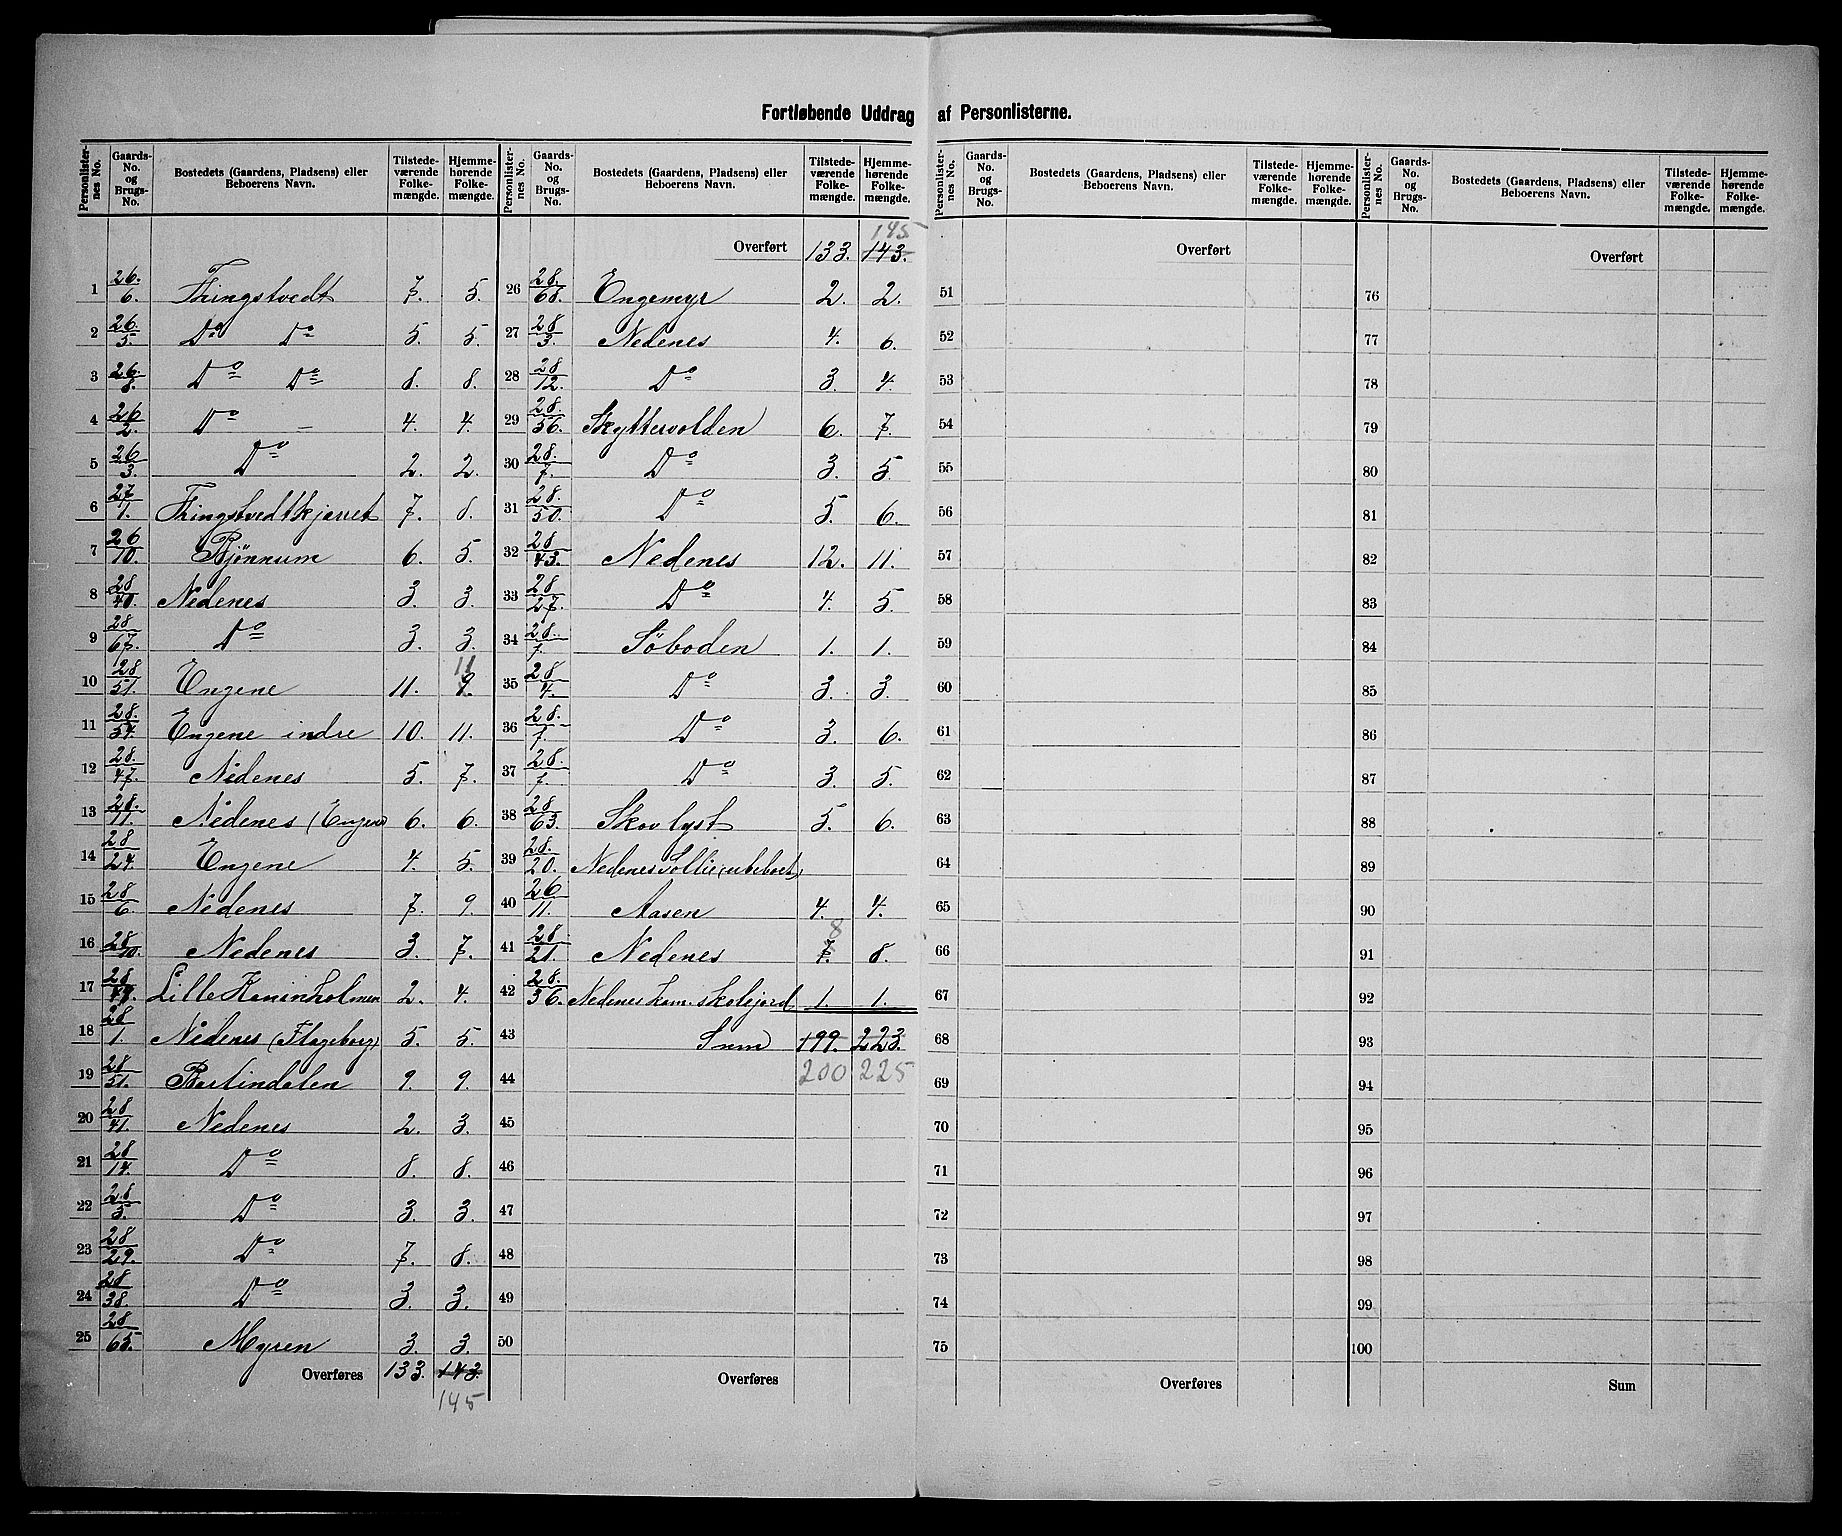 Fortløbende Uddrag af Personlisterne.
Personlister-nes No. Gaards-No. og Brugs-No. Bostedets (Gaardens, Pladsens) eller Beboerens Navn. Tilstede-værende Folke-mængde. Hjemme-hørende Folke-mængde.
1 26./6. Thingstvedt 7. 5.
2 26/5. Do Do 5. 5.
3 26/8. Do Do 8. 8.
4 26/2. Do – 4. 4.
5 26/3. Do 2. 2.
6 27/1. Thingstvedtkjærret 7. 8.
7 26/10. Bjönnum 6. 5.
8 28/40. Nedenes 3. 3.
9 28/67. Do 3. 3.
10 28/51. Engene 11. 9. 11
11 28./54. Engene indre 10. 11.
12 28./47. Nedenes 5. 7.
13 28./11. Nedenes (Engene) 6. 6.
14 28/24. Engene 4. 5.
15 28/6. Nedenes 7. 9.
16 28/10. Nedenes 3. 7.
17 28/ Lille Kaninholmen 2. 4.
18 28/1. Nedenes (Flageborg) 5. 5.
19 28/51. Bastindalen 9. 9.
20 28/41. Nedenes 2. 3.
21 28/14. Do 8. 8.
22 28/5. Do 3. 3.
23 28/29. Do 7. 8.
24 28/38. Do 3. 3.
25 28/65. Myren 3. 3.
Overføres 133. 143.
145
Personlister-nes No. Gaards-No. og Brugs-No. Bostedets (Gaardens, Pladsens) eller Beboerens Navn. Tilstede-værende Folke-mængde. Hjemme-hørende Folke-mængde.
145
Overført 133. 143.
26 28./68. Engemyr 2. 2.
27 28/3. Nedenes 4. 6.
28 28/12. Do 3. 4.
29 28./56. Skyttervolden 6. 7.
30 28./7. Do 3. 5.
31 28./50. Do 5. 6.
32 28/43. Nedenes 12. 11.
33 28/27. Do 4. 5.
34 28./ Söboden 1. 1.
35 28/4. Do 3. 3.
36 28./ Do 3. 6.
37 28./ Do 3. 5.
38 28/63. Skovlyst 5. 6.
39 28./20. Nedenes Sollie (ubeboet)
40 26/11. Aasen 4. 4.
41 28./21. Nedenes 7. 8 8.
42 28./36. Nedenes kom. skolejord 1. 1.
43 Sum 199. 223.
44 200 225
45
46
47
48
49
50
Overføres
Personlister-nes No. Gaards-No. og Brugs-No. Bostedets (Gaardens, Pladsens) eller Beboerens Navn. Tilstede-værende Folke-mængde. Hjemme-hørende Folke-mængde.
Overført
51
52
53
54
55
56
57
58
59
60
61
62
63
64
65
66
67
68
69
70
71
72
73
74
75
Overføres
Personlister-nes No. Gaards-No. og Brugs-No. Bostedets (Gaardens, Pladsens) eller Beboerens Navn. Tilstede-værende Folke-mængde. Hjemme-hørende Folke-mængde.
Overført
76
77
78
79
80
81
82
83
84
85
86
87
88
89
90
91
92
93
94
95
96
97
98
99
100
Sum